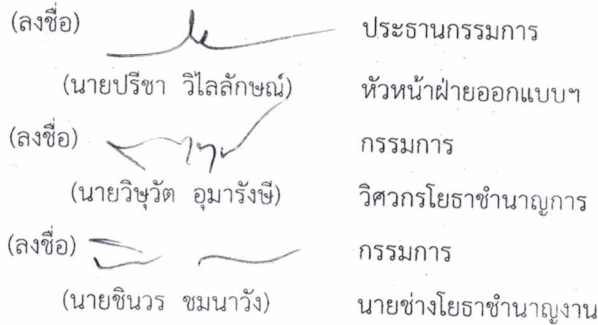 (ลงชื่อ) ประธานกรรมการ
(นายปรีชา วิไลลักษณ์) หัวหน้าฝ่ายออกแบบฯ
(ลงชื่อ) กรรมการ
(นายวิษุวัต อุมารังษี) วิศวกรโยธาชำนาญการ
(ลงชื่อ) กรรมการ
(นายชินวร ชมนาวัง) นายช่างโยธาชำนาญงาน